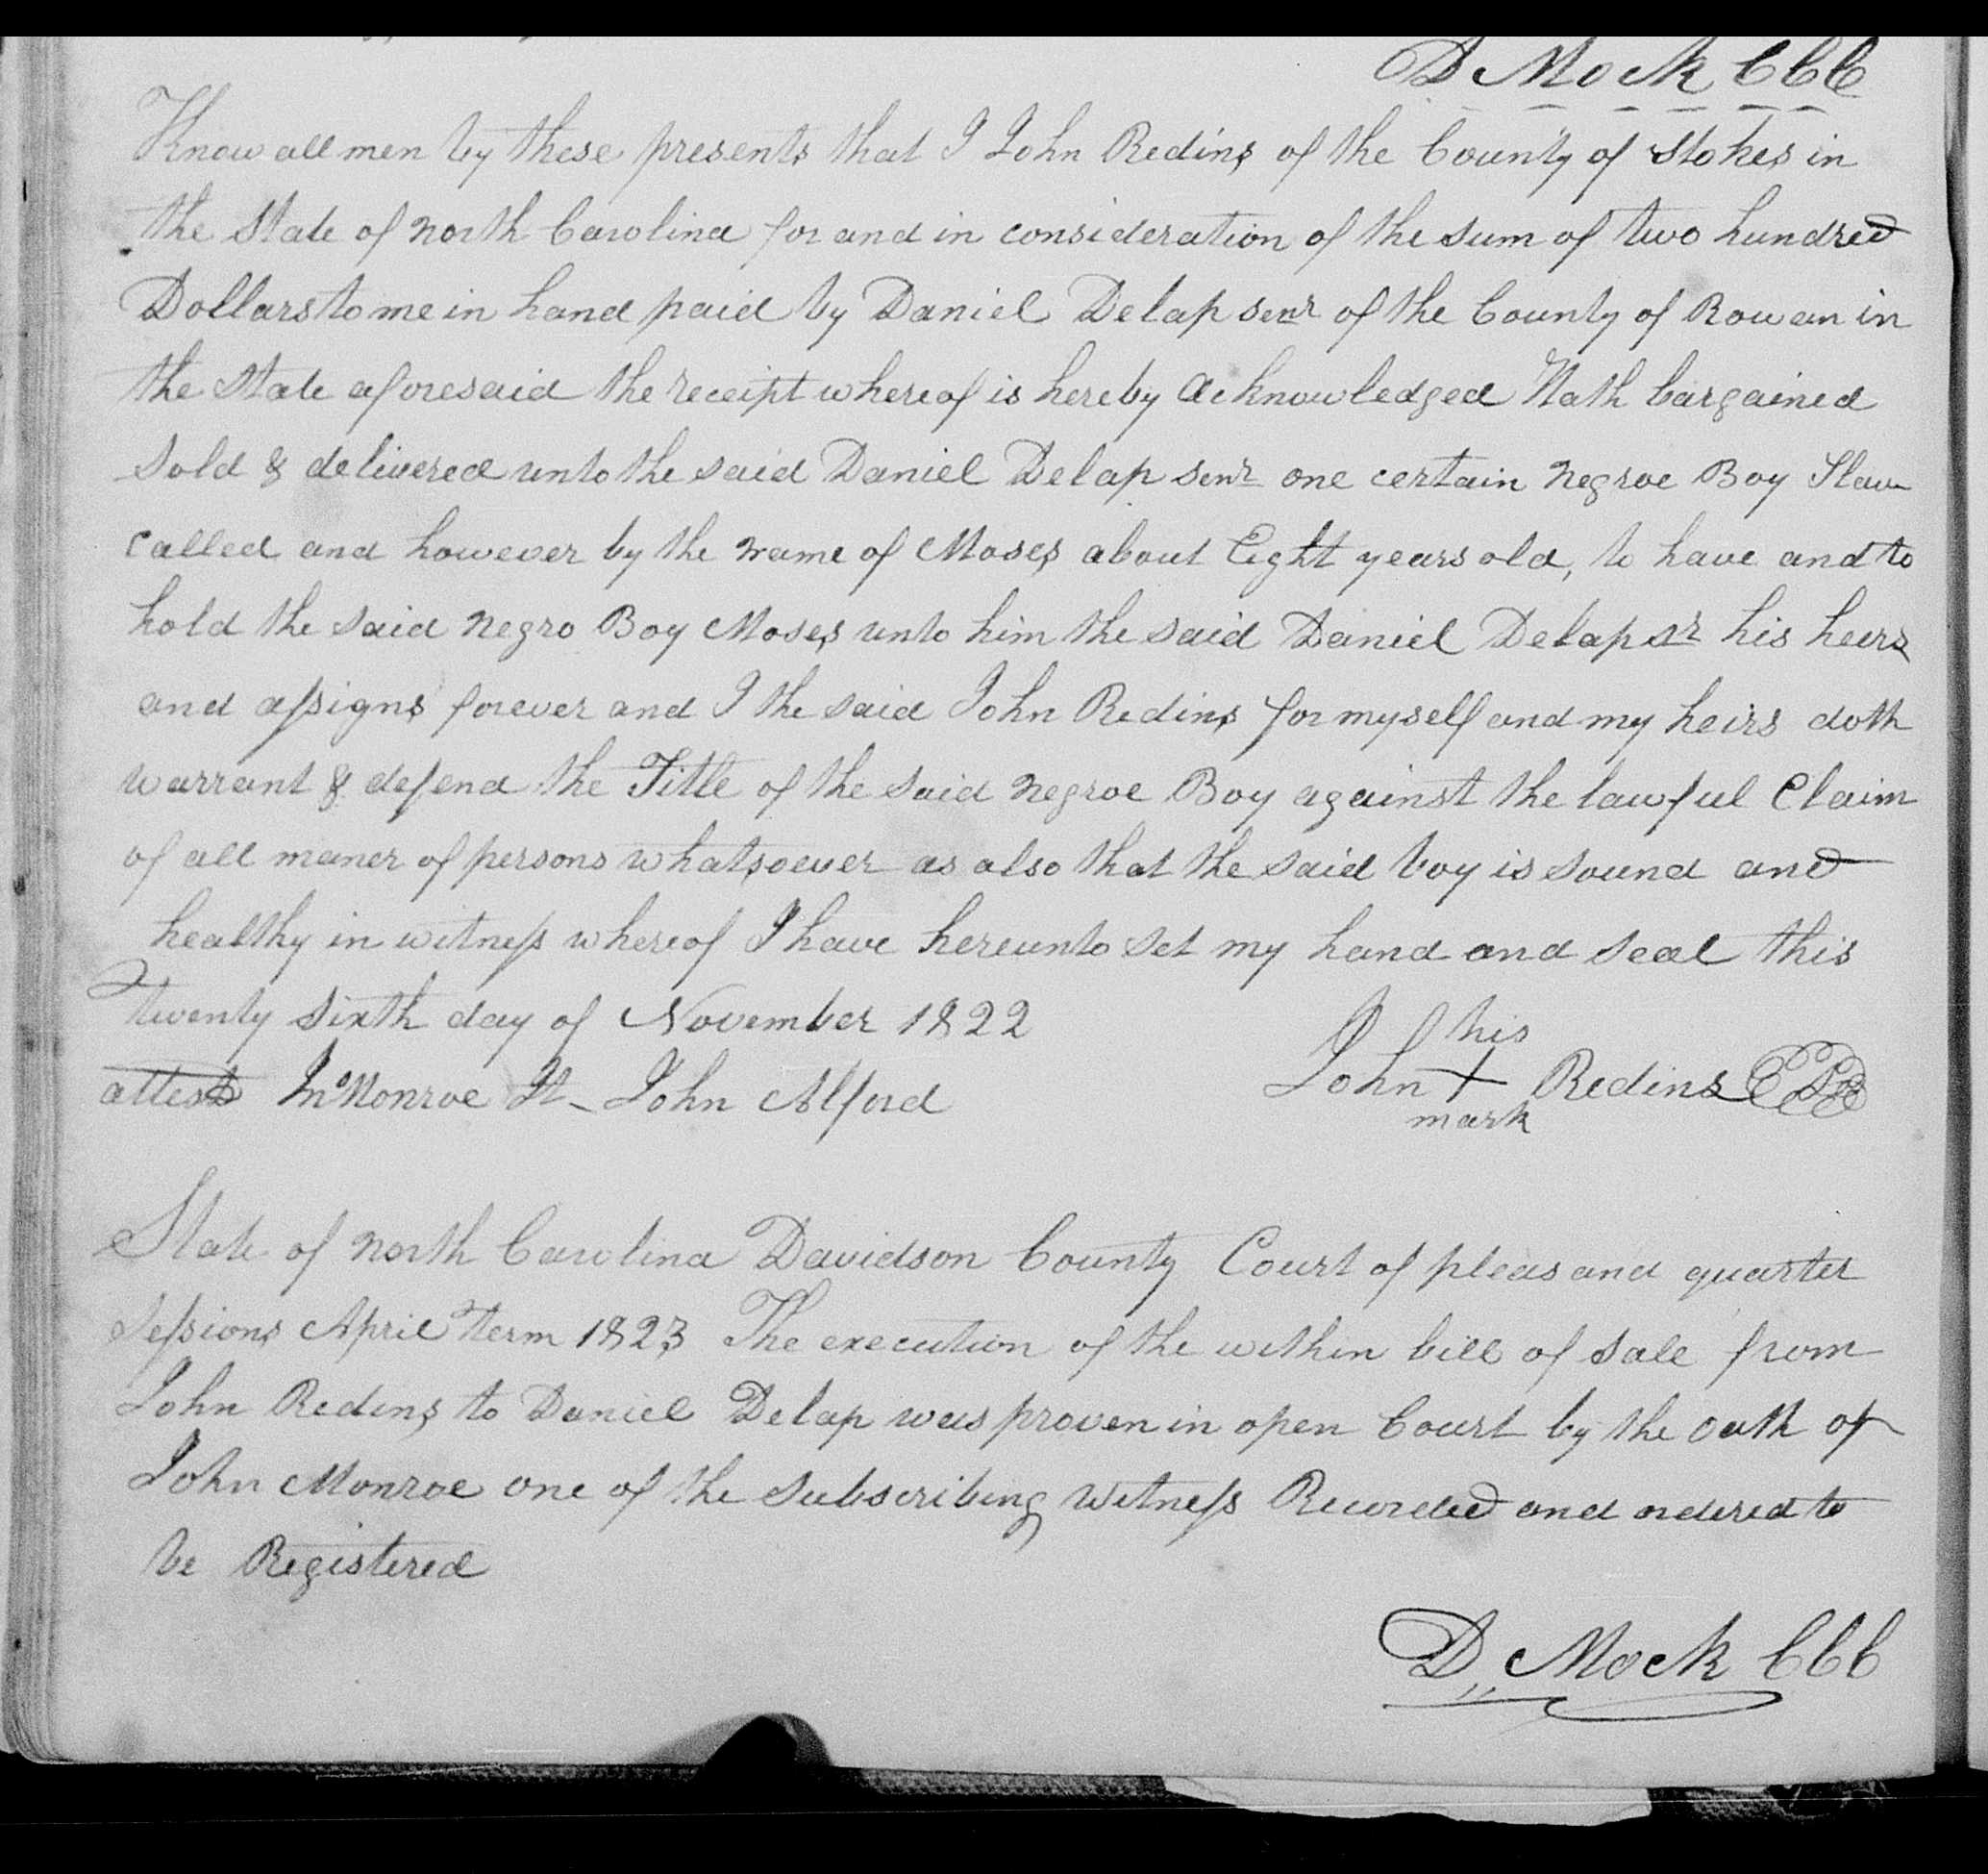 D Mock CCC
Know all men by these presents that I John Redins of the County of Stokes in
the State of North Carolina for and in consideration of the sum of two hundred
Dollars to me in hand paid by Daniel Delap senr of the County of Rowan in
the State aforesaid the receipt whereof is hereby acknowledged Hath bargained
Sold & delivered unto the said Daniel Delap senr one certain Negroe Boy Slave
called and however by the name of Moses about Eight years old, to have and to
hold the said Negro Boy Moses unto him the said Daniel Delap sr his heirs
and assigns forever and I the said John Redins for myself and my heirs doth
warrant & defend the Title of the said Negroe Boy against the lawful Claim
of all maner of persons whatsoever as also that the said boy is sound and
healthy in witness whereof I have hereunto set my hand and seal this
twenty sixth day of November 1822
his
attest Jno Monroe Jt John Alford John + Redins
mark
State of North Carolina Davidson County Court of pleas and quarter
Sessions April Term 1823 The execution of the within bill of sale from
John Redins to Daniel Delap was proven in open Court by the oath of
John Monroe one of the Subscribing Witness Recorded and ordered to
be Registered
D,, Mock CCC